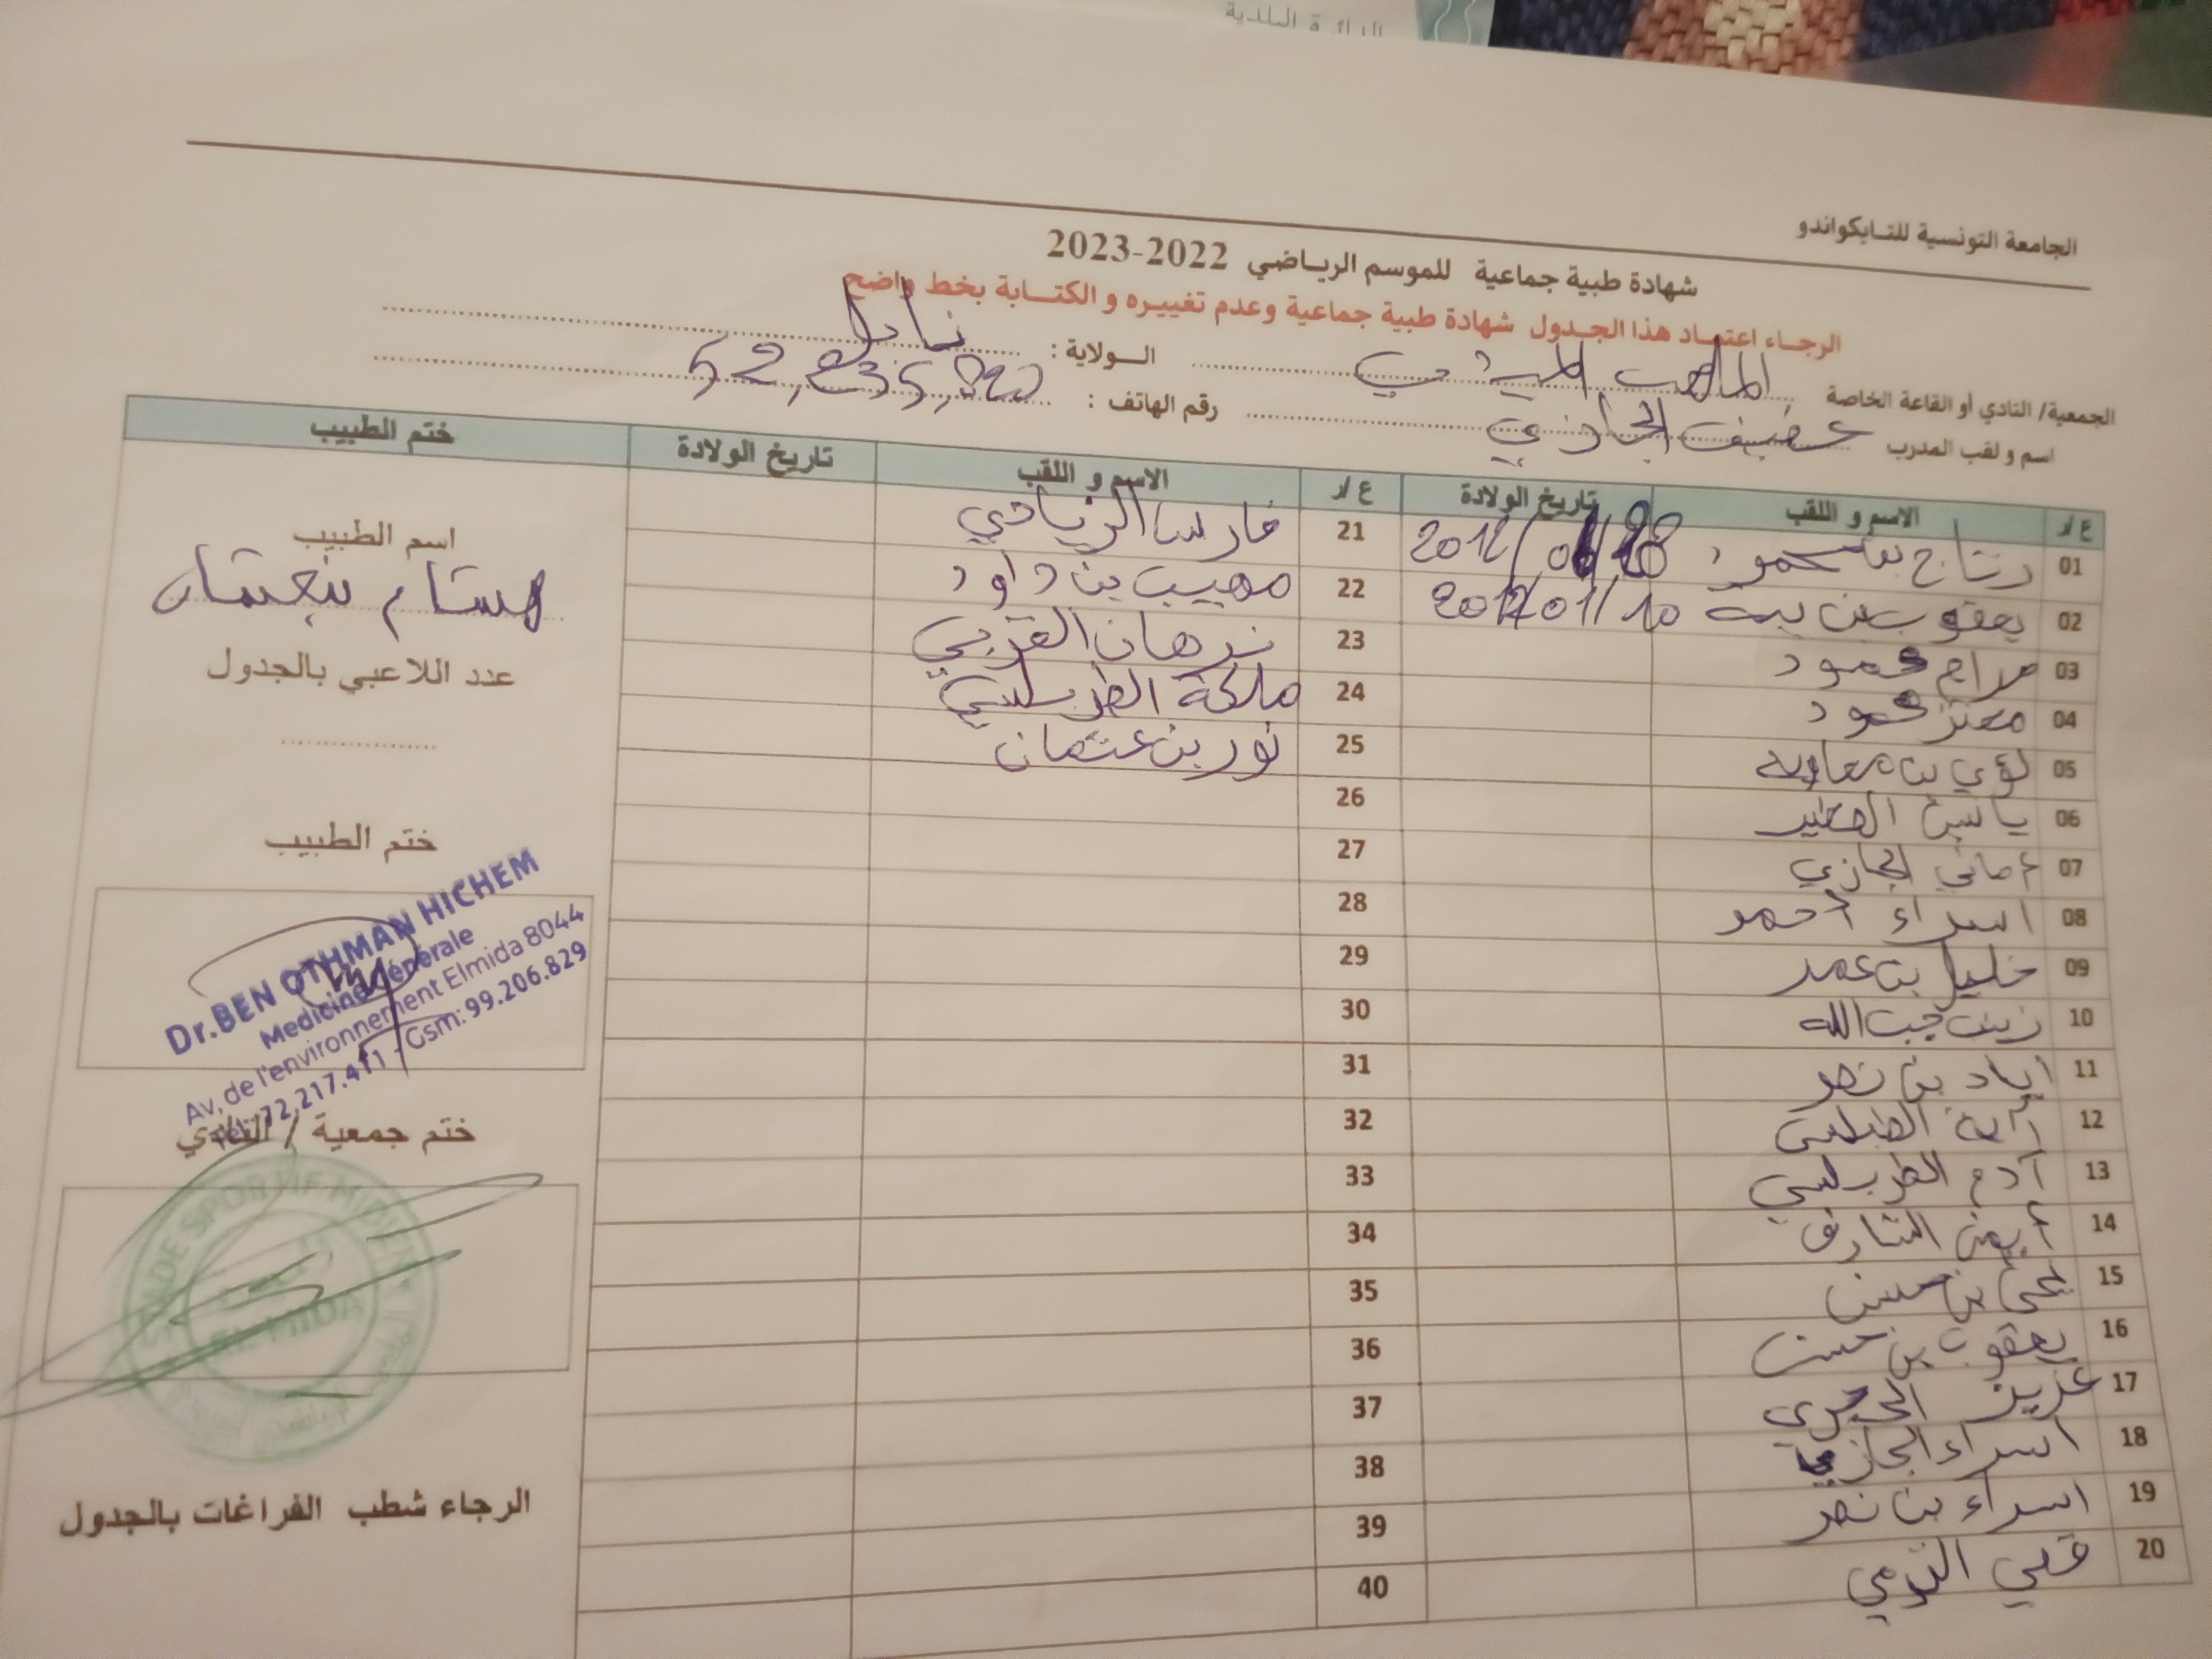 الدائرة البلدية
الجامعة التونسية للتـايكواندو
شهادة طبية جماعية للموسم الريـاضي 2022-2023
الرجـاء اعتمـاد هذا الجـدول شهادة طبية جماعية وعدم تغييـره و الكتـــابة بخط واضح
الجمعية/ النادي أو القاعة الخاصة الملعب الميدي الـــولاية : نابل
اسم و لقب المدرب الحجازي رقم الهاتف : 52,235,
ع /ر الاسم و اللقب تاريخ الولادة ع /ر الاسم و اللقب تاريخ الولادة ختم الطبيب
01 رتاج بن محمود 2012/01/18 21 فارس الزياحي
02 يعقوب بن بية 2012/01/10 22 مهيب بن داود
03 سراج محمود 23 نرهان القربي
04 معتز محمود 24 ملكة الطربلسي
05 لؤي بن معاوية 25 نور بن عثمان
06 ياسين الصغير 26
07 أماني الحجازي 27
08 اسراء أحمد 28
09 خليل بن عمر 29
10 زينب جب الله 30
11 اياد بن نصر 31
12 آية الطربلسي 32
13 آدم الطربلسي 33
14 أيمن الشارف 34
15 يحي بن حسين 35
16 يعقوب بن حسن 36
17 عزيز 37
18 اسراء الحجازي 38
19 اسراء بن نصر 39
20 قصي 40
اسم الطبيب
هشام بنعثمان
عدد اللاعبي بالجدول
ختم الطبيب
Dr.BEN OTHMAN HICHEM
Medicine Générale
Av, de l'environnement Elmida 8044
Tél: 72.217.411 - Gsm: 99.206.829
ختم جمعية / النادي
STADE SPORTIF MIDIEN
EL MIDA
الرجاء شطب الفراغات بالجدول